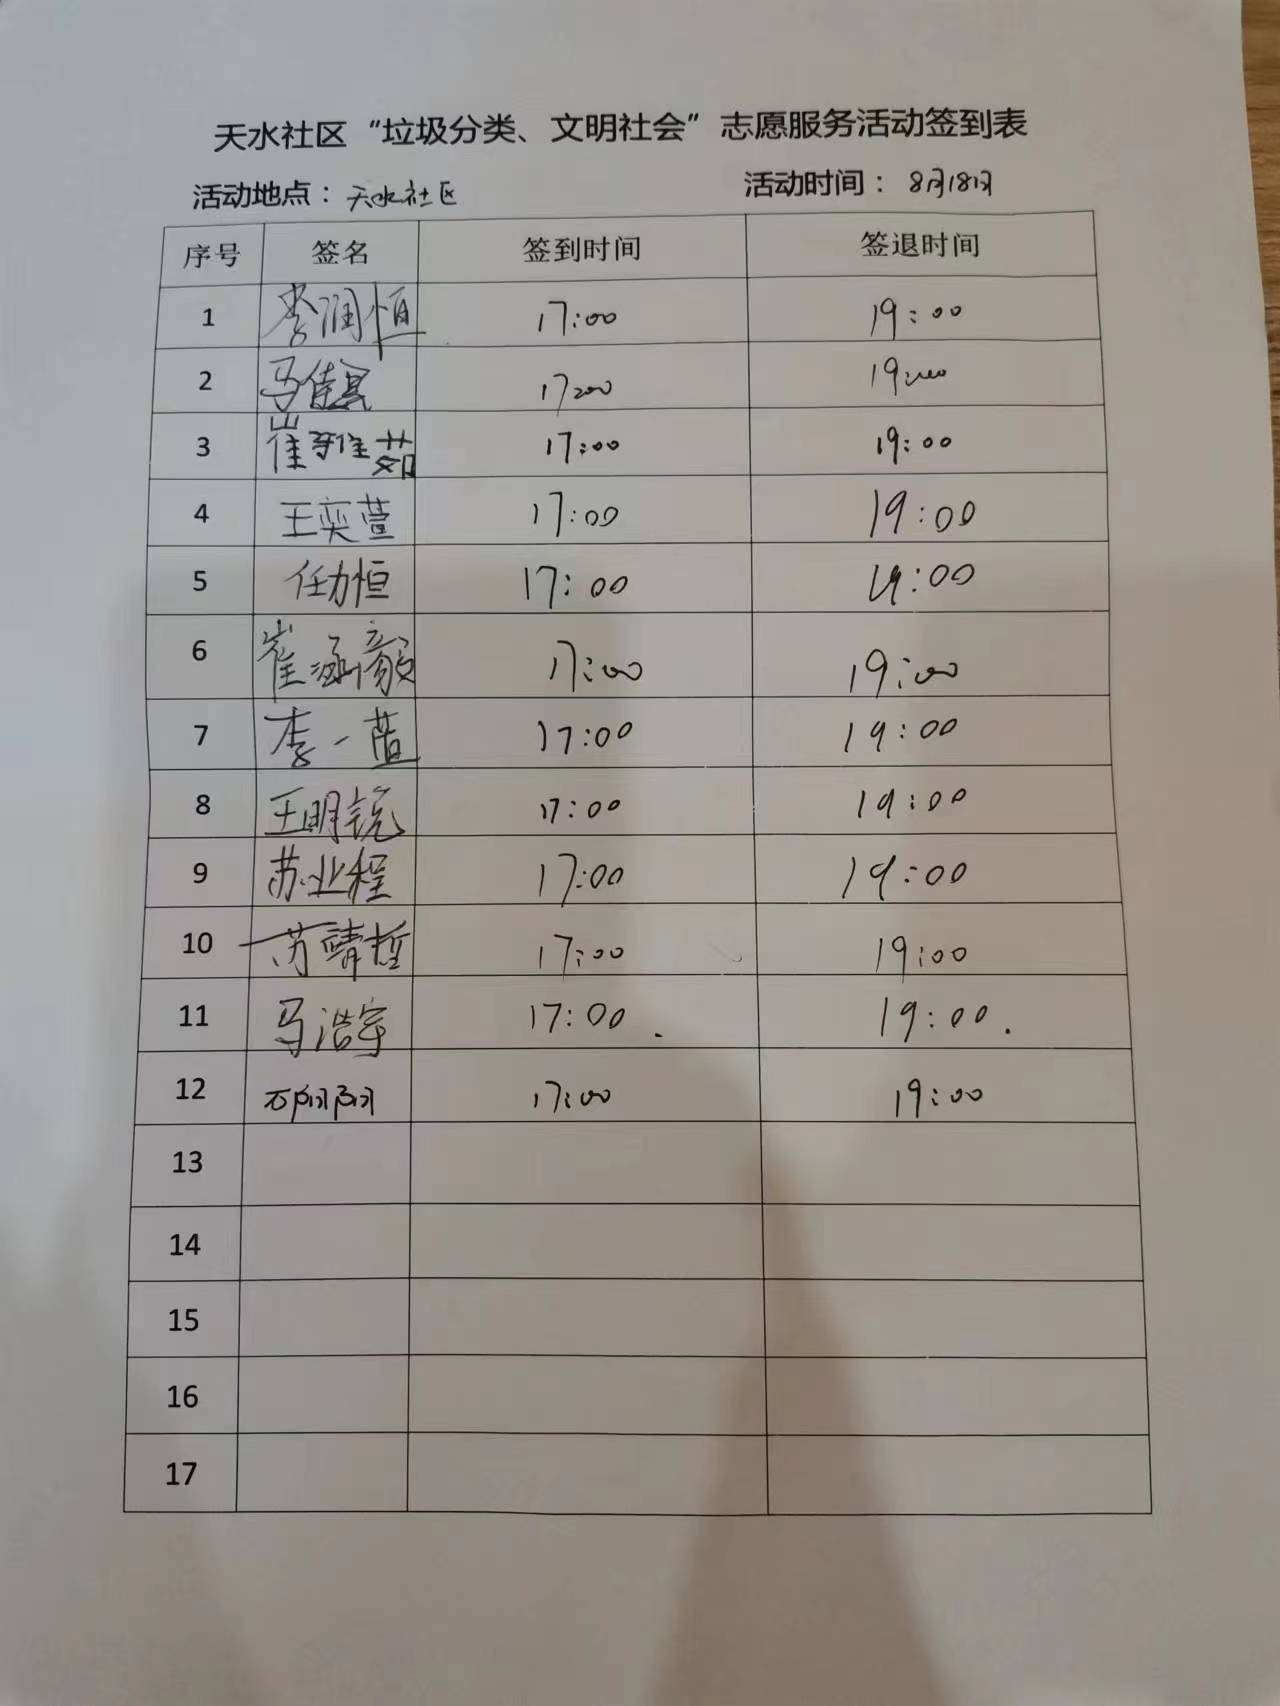 天水社区“垃圾分类、文明社会”志愿服务活动签到表
活动地点：天水社区 活动时间：8月18日
序号 签名 签到时间 签退时间
1 李润恒 17:00 19:00
2 马佳 17:00 19:00
3 崔雅茹 17:00 19:00
4 王奕萱 17:00 19:00
5 任力恒 17:00 19:00
6 崔涵颜 17:00 19:00
7 李一 17:00 19:00
8 王明锐 17:00 19:00
9 苏业程 17:00 19:00
10 苏靖哲 17:00 19:00
11 马浩宇 17:00. 19:00.
12 17:00 19:00
13
14
15
16
17